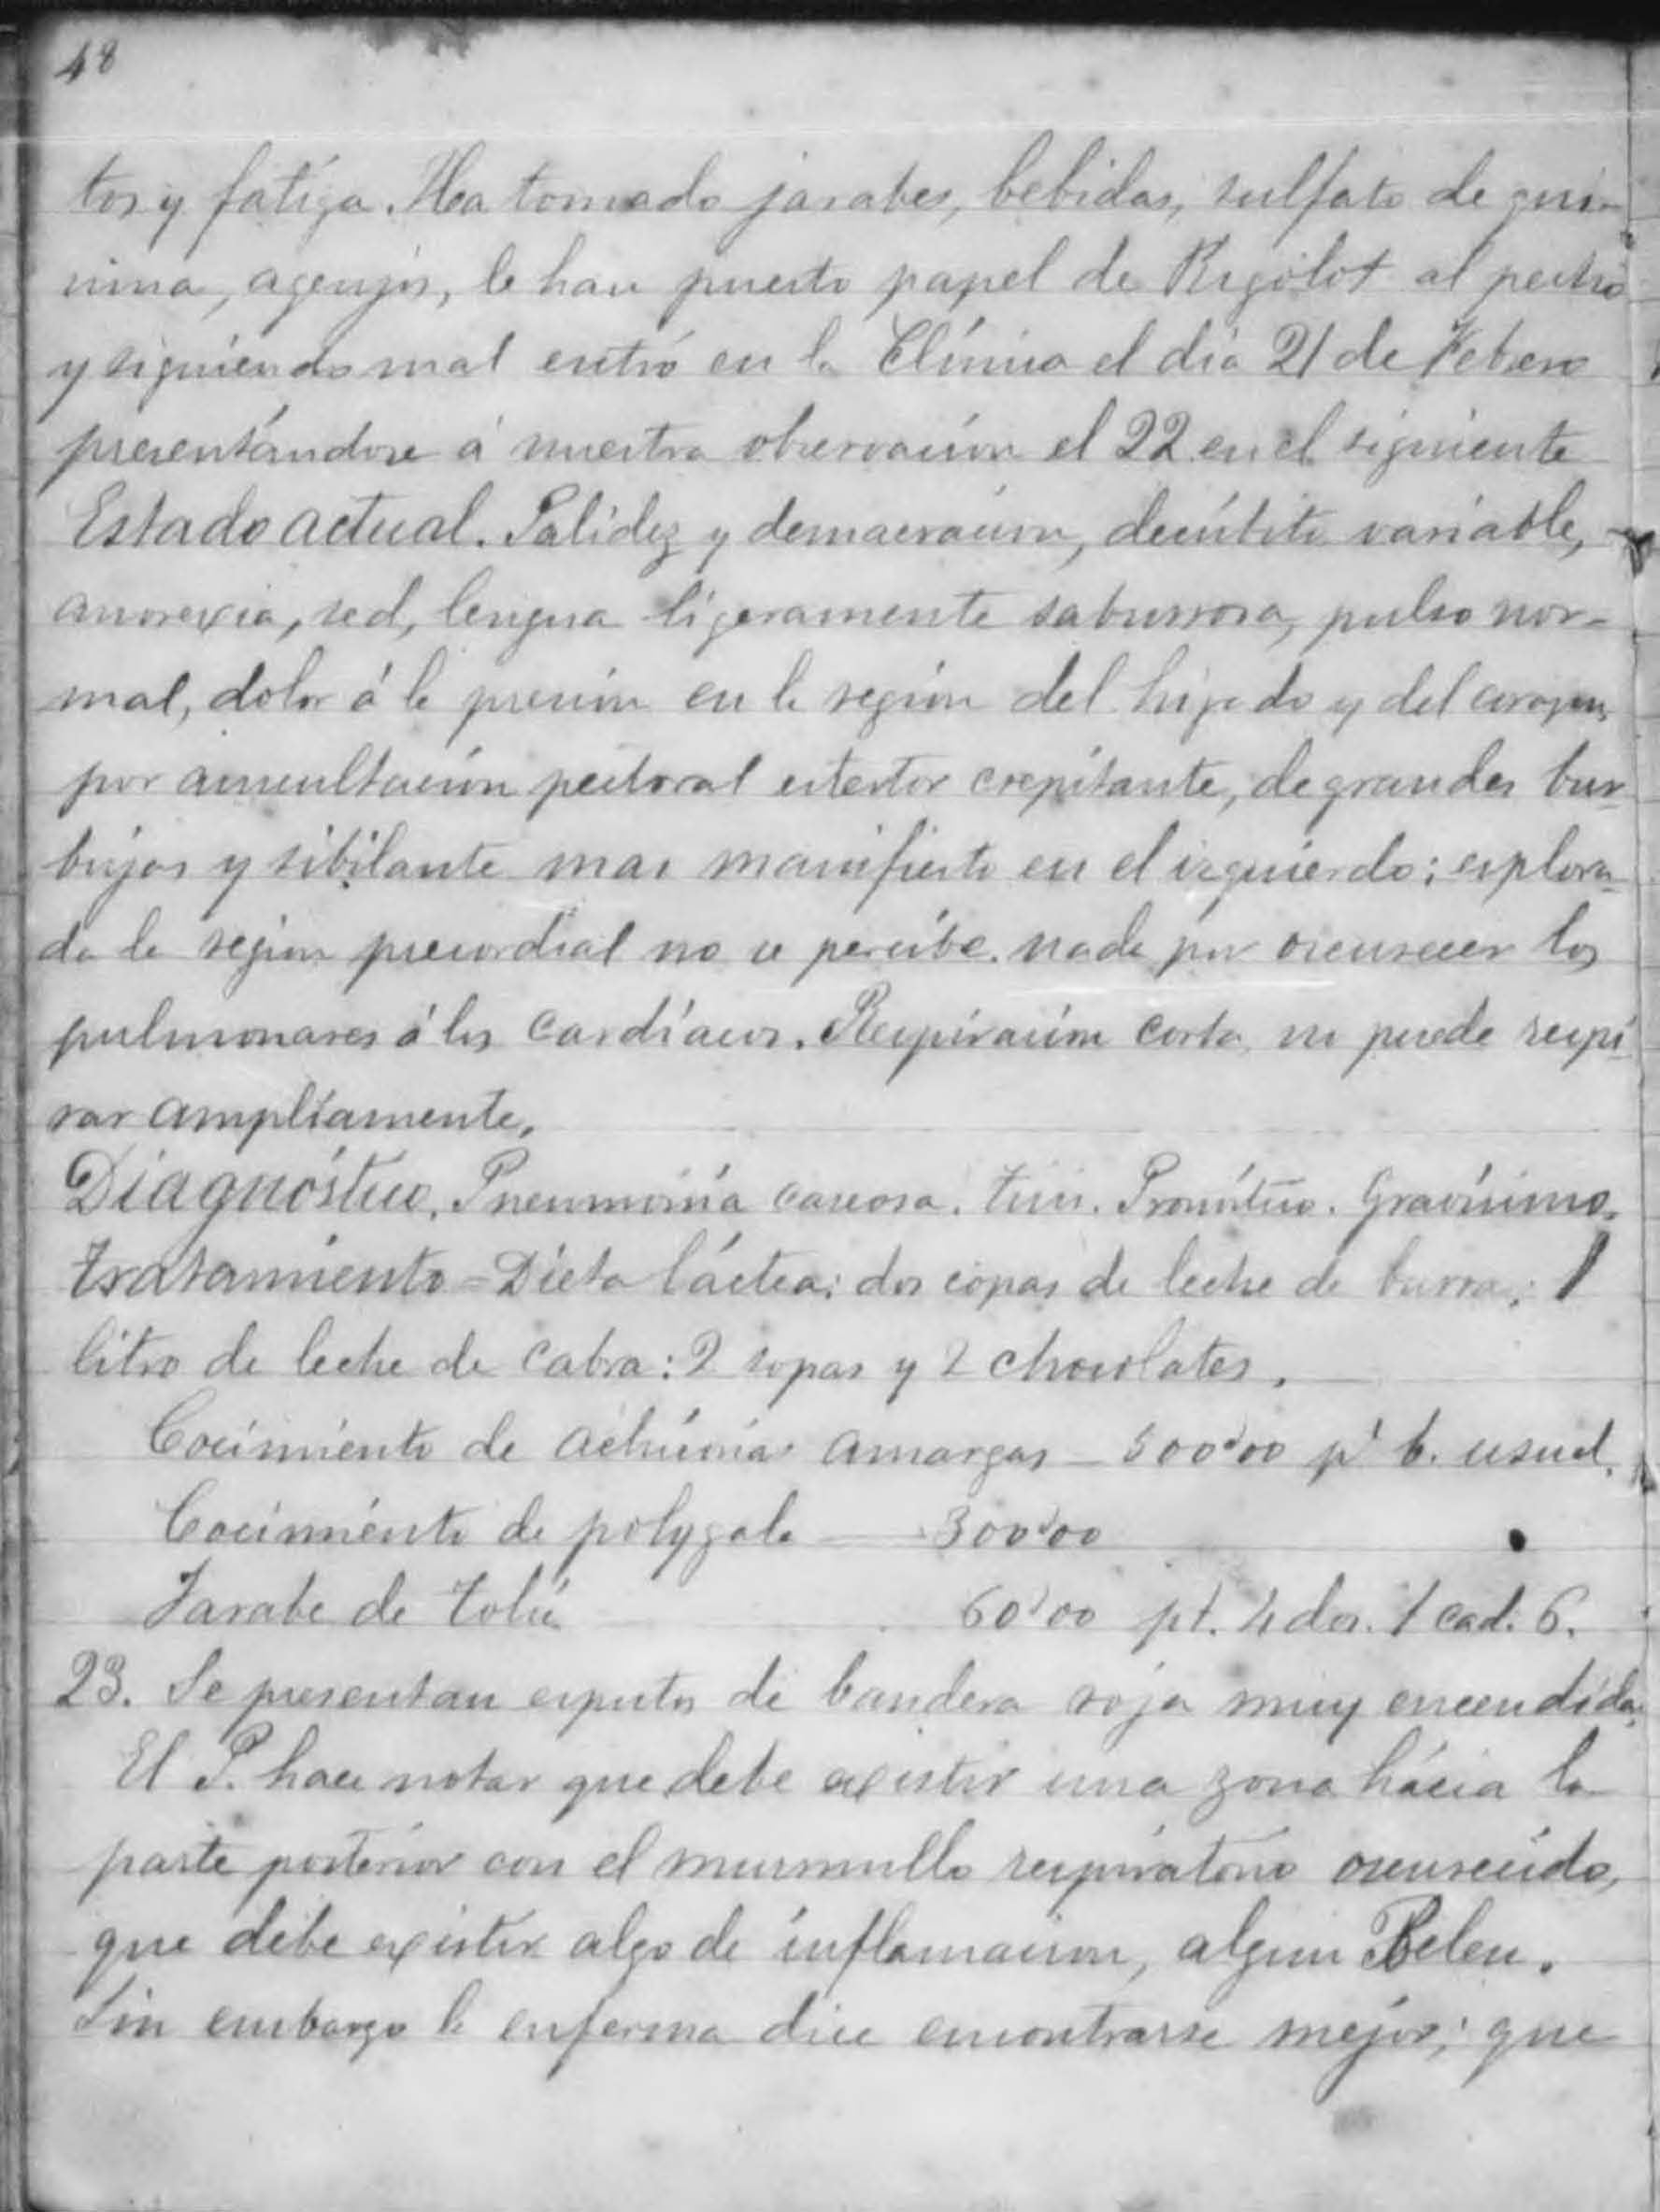 48
tos y fatiga. Ha tomado jarabes, bebidas, sulfato de qui-
nina, agenjos, le han puesto papel de Rigolot al pecho
y siguiendo mal entró en la Clínica el día 21 de Febrero
presentándose á nuestra observación el 22 en el siguiente
Estado actual. Palidez y demacración, decúbito variable,
anorexia, sed, lengua ligeramente saburrosa, pulso nor-
mal, dolor á la presión en la región del hígado y del corazón,
por auscultación pectoral estertor crepitante, de grandes bur-
bujas y sibilante mas manifiesto en el izquierdo; explora-
da la región precordial no se percibe nada por oscurecer los
pulmonares á los cardíacos. Respiración corta, no puede respi
rar ampliamente.
Diagnóstico. Pneumonía caseosa. Pronóstico. Gravísimo.
Tratamiento = Dieta láctea: dos copas de leche de burra; 1
litro de leche de cabra: 2 sopas y 2 chocolates.
Cocimiento de achicorias amargas — 500'00 pª b. usual.
Cocimiento de polygala — 300'00
Jarabe de Tolú 60'00 pt. 4 dos. 1 cad. 6.
23. Se presentan esputos de bandera roja muy encendida.
El P. hace notar que debe existir una zona hácia la
parte posterior con el murmullo respiratorio oscurecido,
que debe existir algo de inflamacion, algun Belen.
Sin embargo la enferma dice encontrarse mejor; que